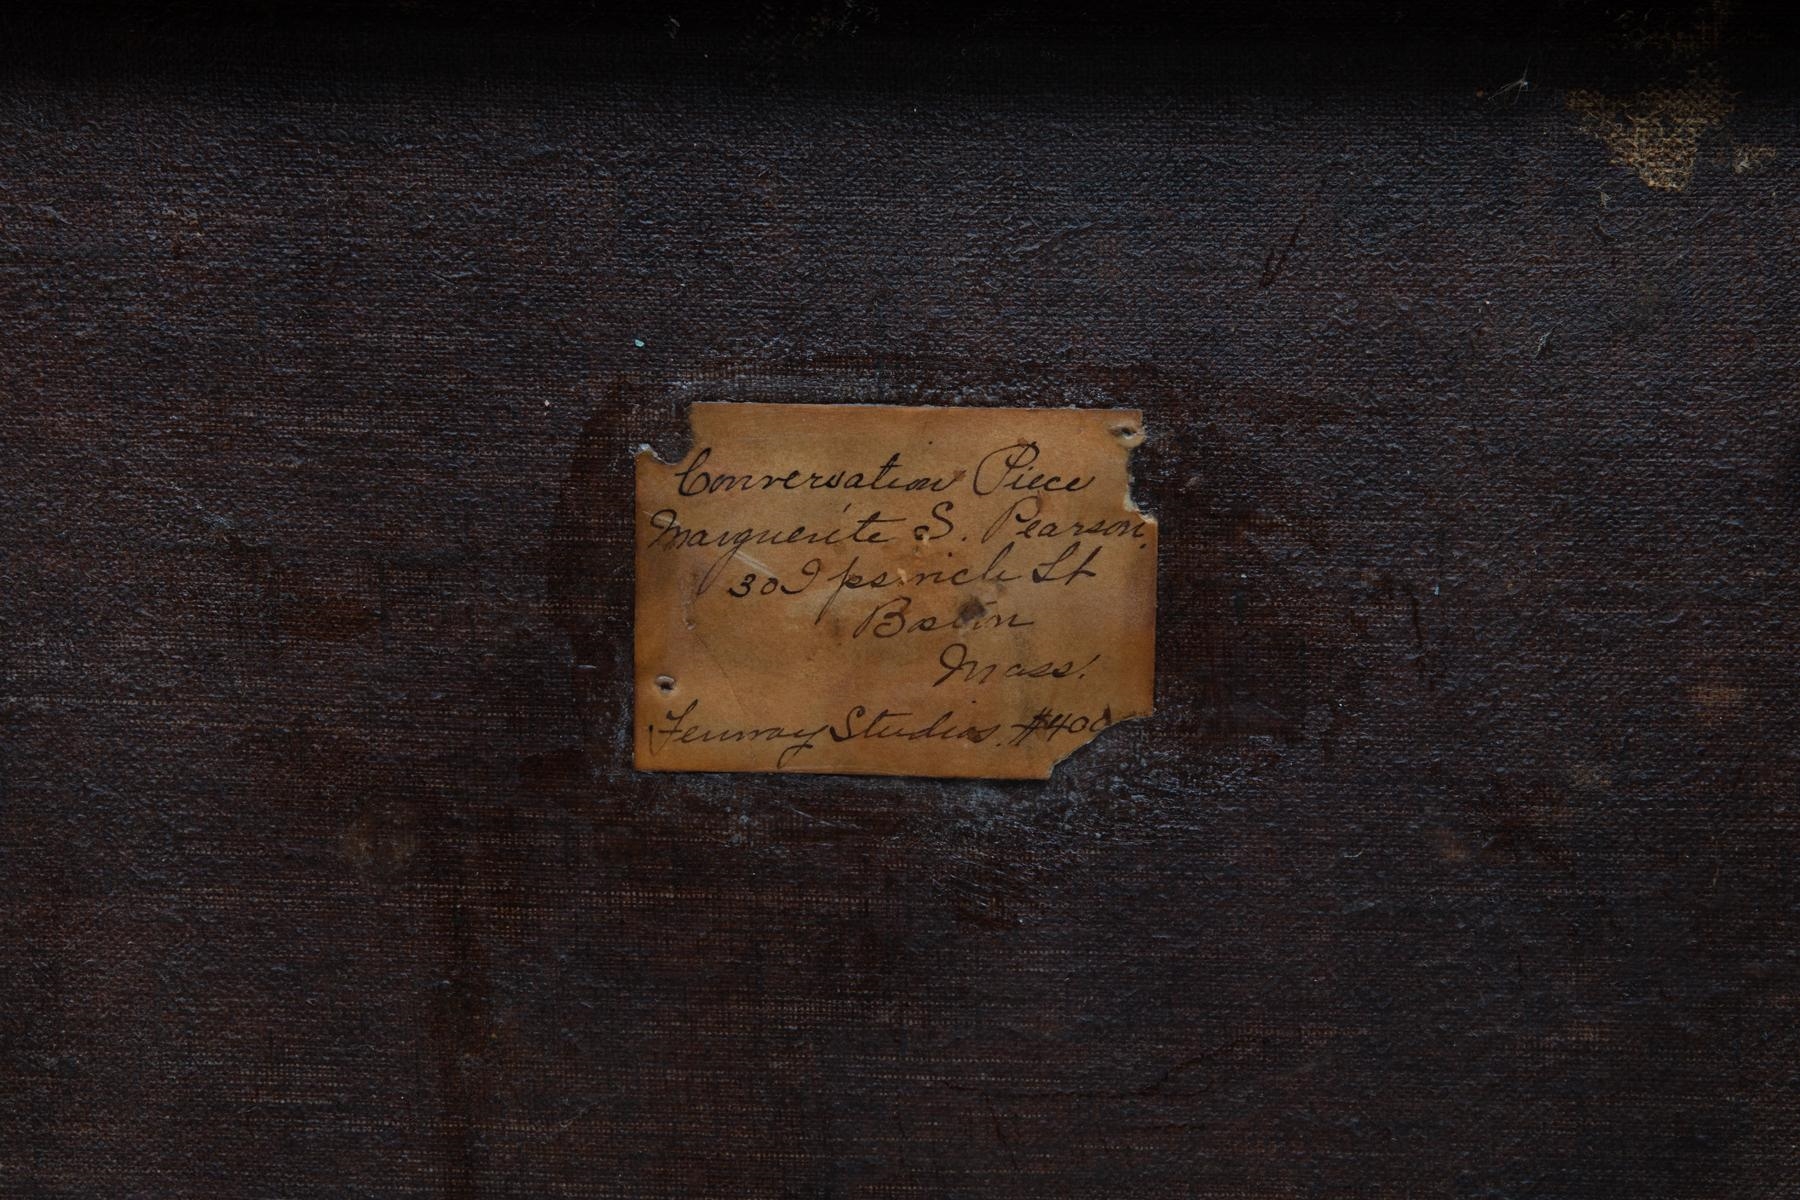 Conversation Piece
Marguerite S. Pearson.
30 Ipswich St
Boston
Mass.
Fenway Studios. #400